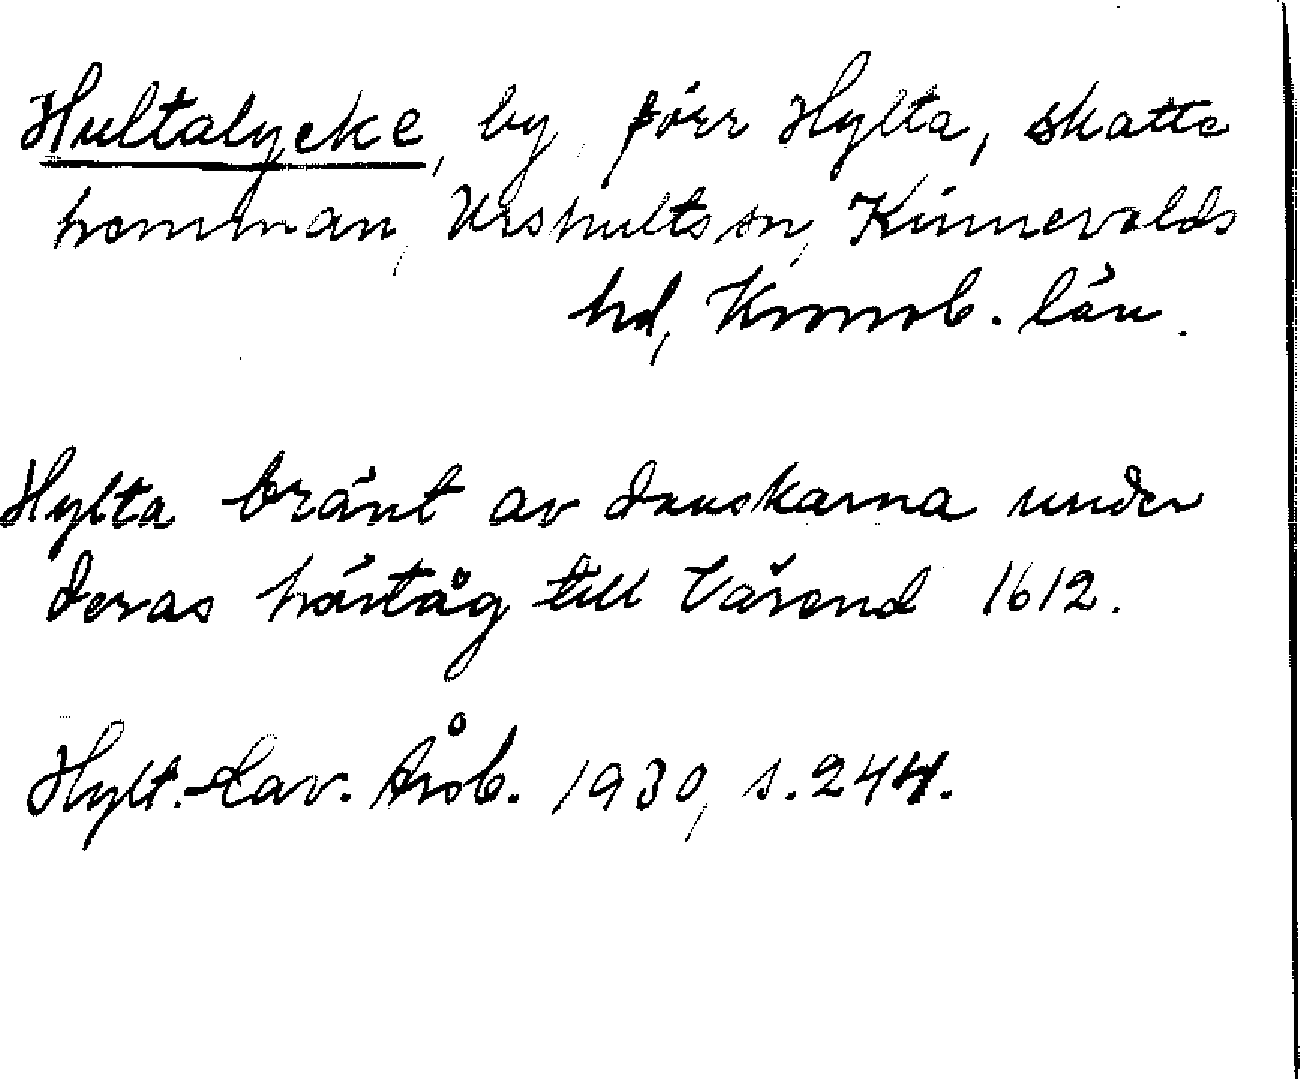 Hultalycke, by, förr Hylta, skatte
hemman, Urshults sn, Kinnevalds
hd, Kronob. län.
Hylta bränt av danskarna under
deras härtåg till Värend 1612.
Hylt.-Cav. Årsb. 1930, s. 244.